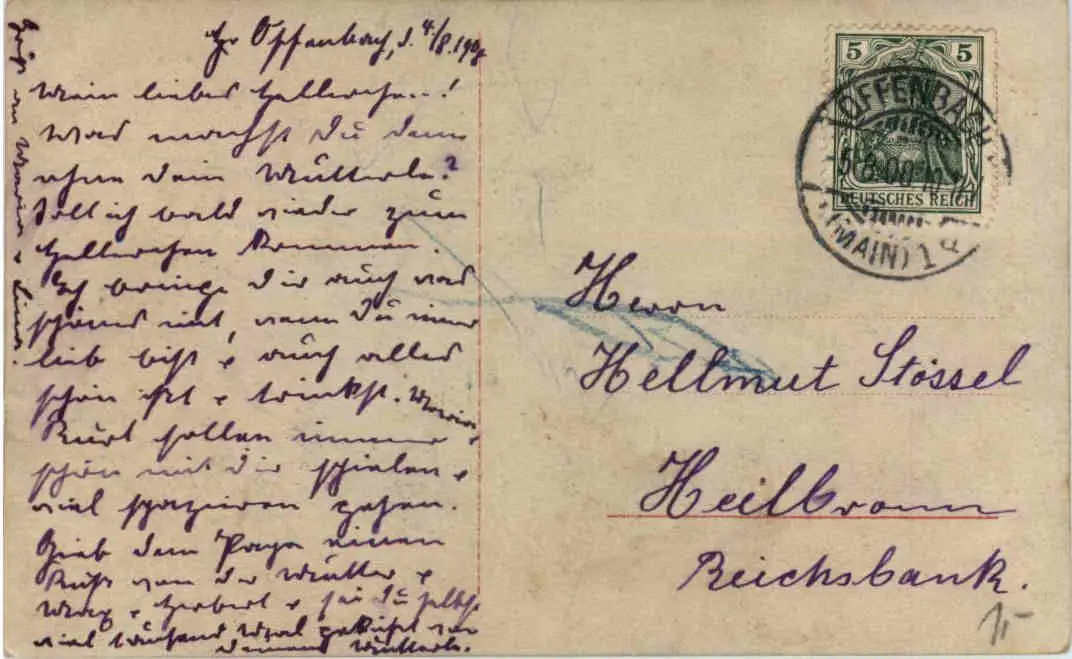 Offenbach, d. 4/8.190
Mein liebes Hellerchen!
Was machst Du denn
ohne Dein Mutterle?
Soll ich bald wieder zum
Hellerchen kommen
Ich bringe Dir auch was
schönes mit, wenn Du immer
lieb bist & auch alles
schön ißt & trinkst. Maria &
Kurt sollen immer
schön mit Dir spielen &
viel spazieren gehen.
Gieb dem Papa einen
Kuß von der Mutter &
& Herbert & sei Du selbst
viel tausend Mal geküßt von
Deinem Mutterle.
5 5
DEUTSCHES REICH
OFFENBACH
(MAIN) 1
Herrn
Hellmut Stössel
Heilbronn
Reichsbank.